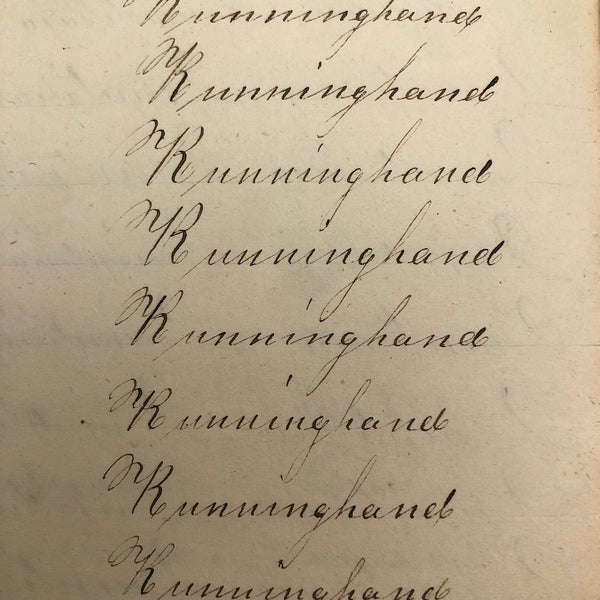 Runninghand
Runninghand
Runninghand
Runninghand
Runninghand
Runninghand
Runninghand
Runninghand